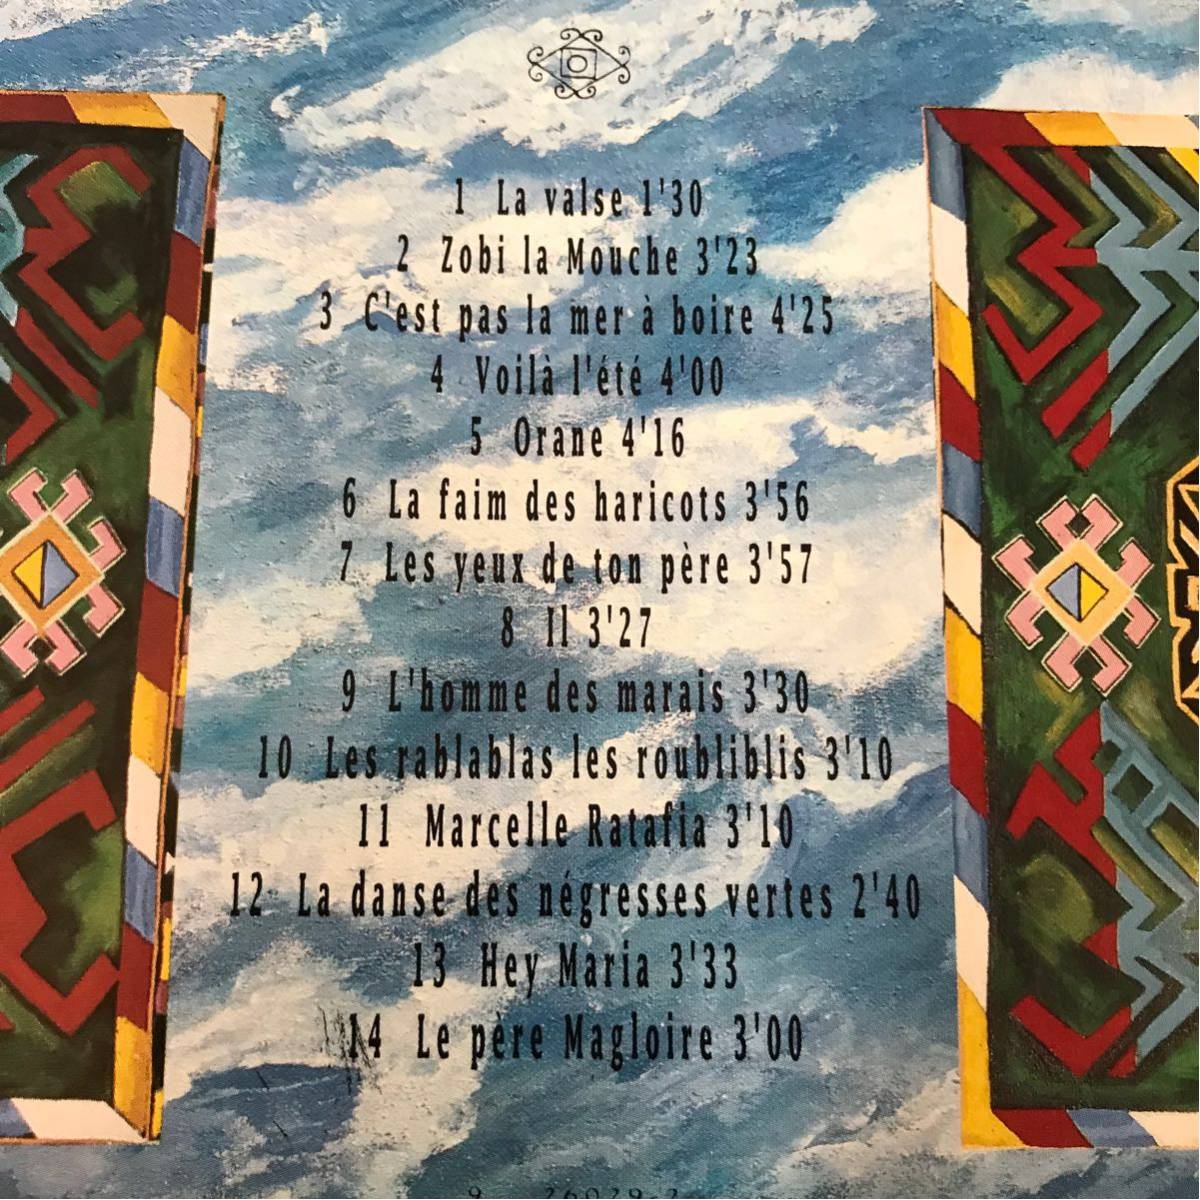 1 La valse 1'30
2 Zobi la Mouche 3'23
3 C'est pas la mer à boire 4'25
4 Voilà l'été 4'00
5 Orane 4'16
6 La faim des haricots 3'56
7 Les yeux de ton père 3'57
8 Il 3'27
9 L'homme des marais 3'30
10 Les rablablas les roubliblis 3'10
11 Marcelle Ratafia 3'10
12 La danse des négresses vertes 2'40
13 Hey Maria 3'33
14 Le père Magloire 3'00